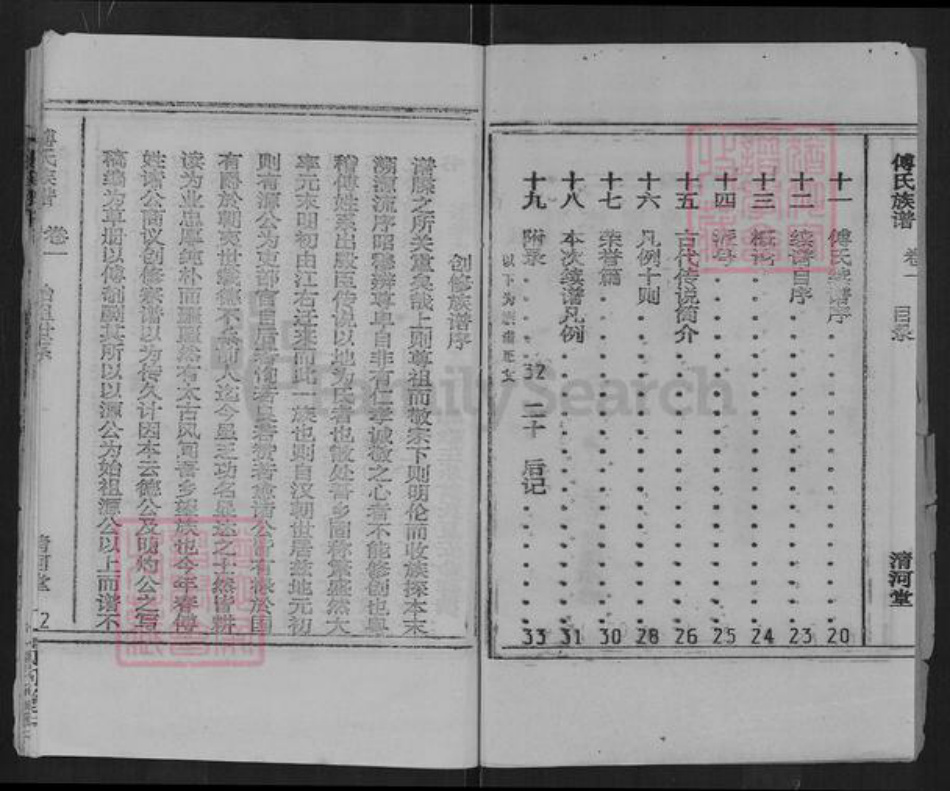 傅氏族谱 卷一 目录 清河堂
十一 傅氏续谱序 20
十二 续谱自序 23
十三 概论 24
十四 派号 25
十五 古代传说简介 26
十六 凡例十则 28
十七 荣誉篇 30
十八 本次续谱凡例 31
十九 附录 32 二十 后记 33
以下为
创修族谱序
谱牒之所关重矣哉上则尊祖而敬宗下则明伦而收族探本末
溯源流序昭穆辨尊卑自非有仁孝诚敬之心者不能修创也粤
稽傅姓系出殷臣传说以地为氏者也散处吾乡间称繁盛然大
率元末明初由江右迁来而此一族也则自汉朝世居兹地元初
则有源公为吏部 公皆有禄於国
有爵於朝奕世缵德不忝前人迄今虽乏功名显达之士然皆耕
读为业忠厚纯朴而 然有太古风闻吾乡望族也今年春傅
姓诸公商议创修族谱以为传久计因本云德公及明灼公之写
稿编为草册以傅 其所以以源公为始祖源公以上而谱不
傅氏族谱 卷一 始祖世系 清河堂 2
FamilySearch